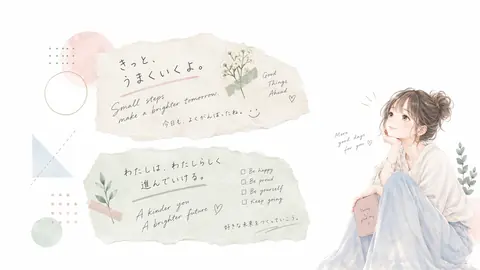 きっと、
うまくいくよ。
Small steps
make a brighter tomorrow.
今日も、よくがんばったね。
Good
Things
Ahead
わたしは、わたしらしく
進んでいける。
A kinder you
A brighter future
Be happy
Be proud
Be yourself
Keep going
好きな未来をつくっていこう。
More
good days
for you